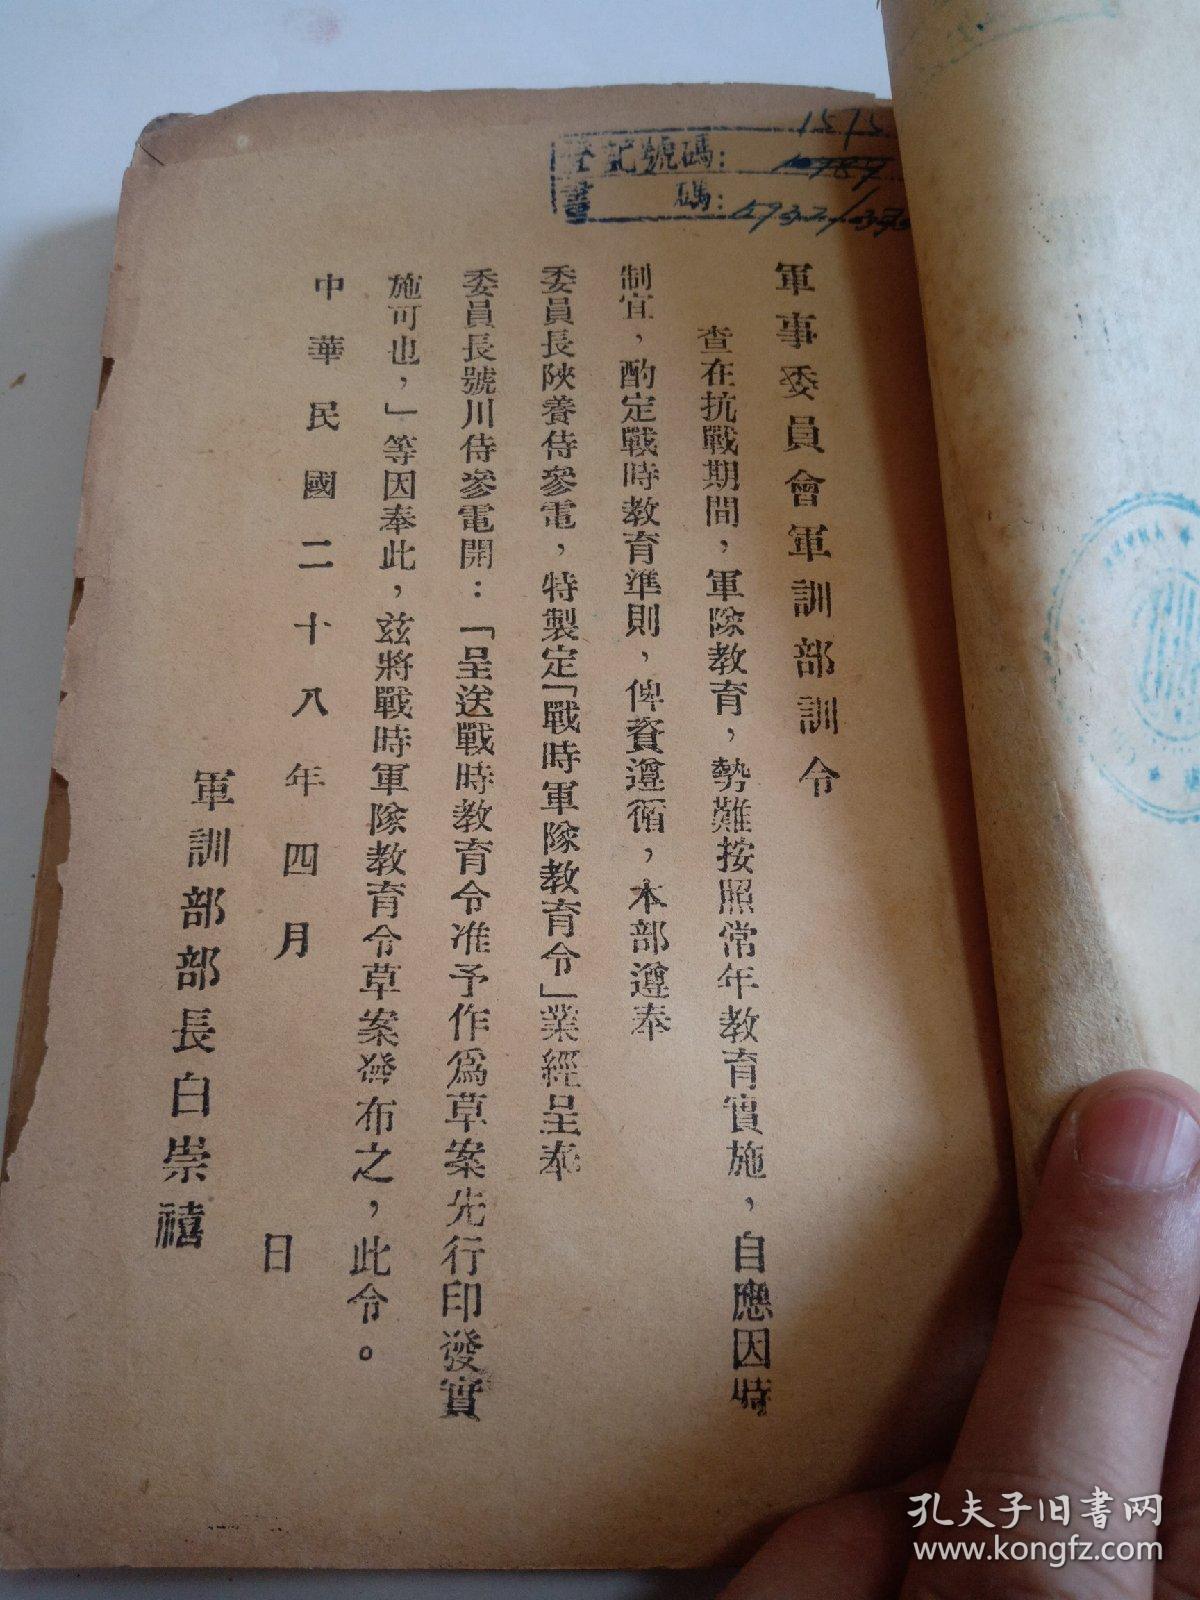 登記號碼：
1575
書碼：
軍事委員會軍訓部訓令
查在抗戰期間，軍隊教育，勢難按照常年教育實施，自應因時
制宜，酌定戰時教育準則，俾資遵循，本部遵奉
委員長陝養侍參電，特製定「戰時軍隊教育令」業經呈奉
委員長號川侍參電開：「呈送戰時教育令准予作爲草案先行印發實
施可也，」等因奉此，茲將戰時軍隊教育令草案發布之，此令。
中華民國二十八年四月　日
軍訓部部長白崇禧
孔夫子旧书网
www.kongfz.com